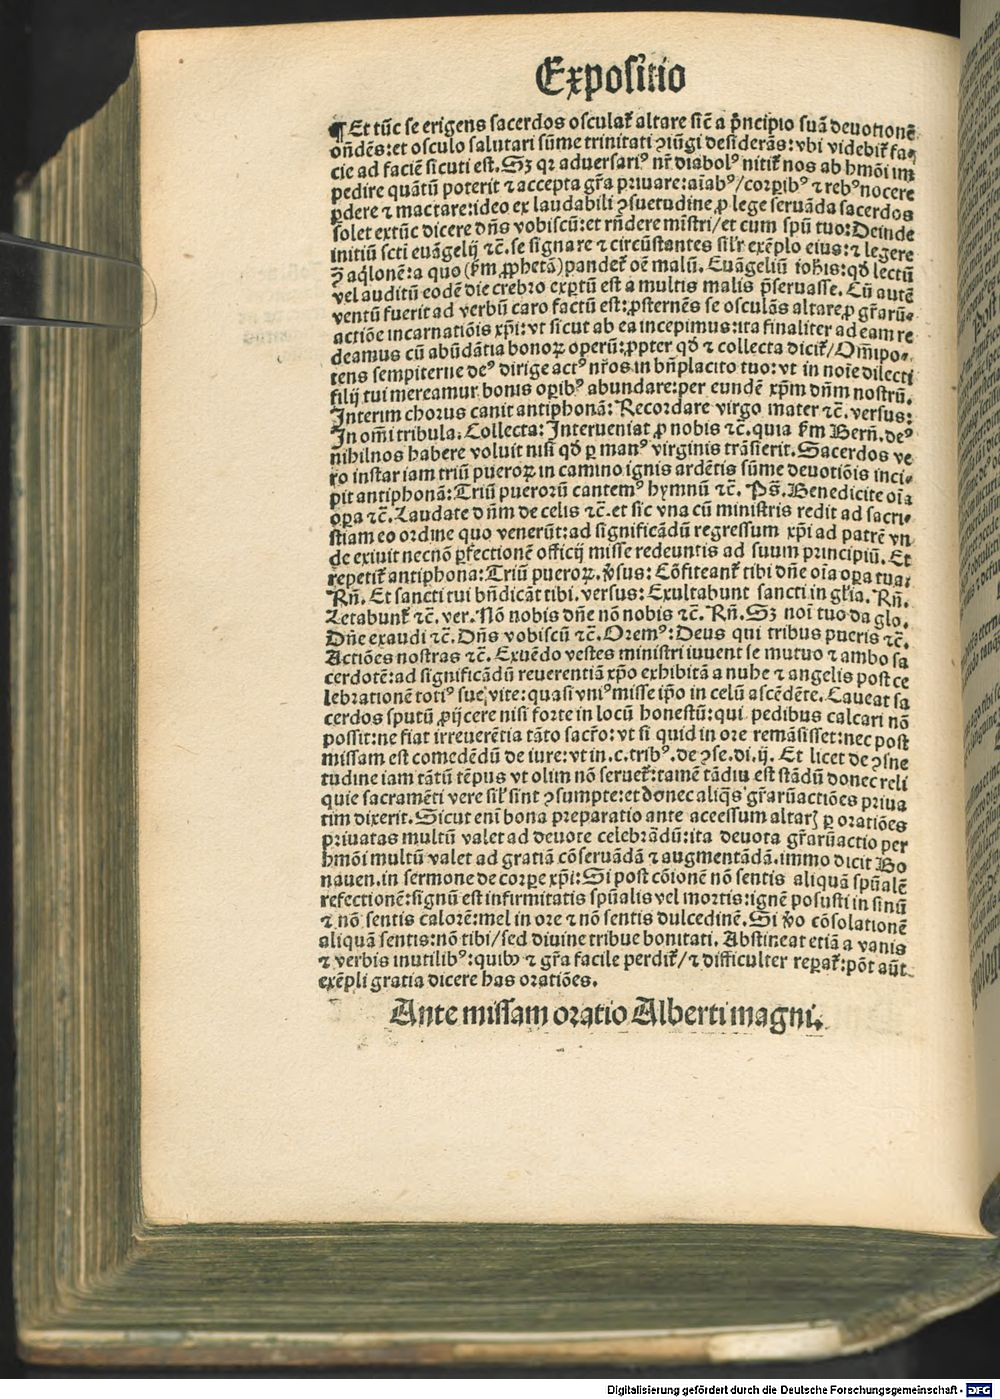 Expositio
¶ Et tūc se erigens sacerdos osculat̄ altare sic̄ a p̄ncipio suā deuotionē
on̄dēs: et osculo salutari sūme trinitati ꝯiūgi desiderās: vbi videbit̄ fa⸗
cie ad faciē sicuti est. Sꝫ qꝛ aduersariꝰ nr̄ diabolꝰ nitit̄ nos ab hmōi im
pedire quātū poterit ⁊ accepta gr̄a priuare: aīabꝰ/ corꝑibꝰ ⁊ rebꝰ nocere
ꝑdere ⁊ mactare: ideo ex laudabili ꝯsuetudine ꝓ lege seruāda sacerdos
solet extūc dicere dn̄s vobiscū: et rn̄dere mīstri/ et cum spū tuo: Deinde
initiū scti euāgelij ⁊c̄. se signare ⁊ circūstantes sil'r exēplo eius: ⁊ legere
ꝫ̄ aq̇lonē: a quo (fm̄ ꝓphetā) pandet̄ oē malū. Euāgeliū ioh̄is: qd̄ lectū
vel auditū eodē die crebro exꝑtū est a multis malis p̄seruasse. Cū autē
ventū fuerit ad verbū caro factū est: ꝓsternēs se osculās altare ꝓ gr̄arū⸗
actiōe incarnatiōis xp̄i: vt sicut ab ea incepimus: ita finaliter ad eam re
deamus cū abūdātia bonoꝝ operū: ꝓpter qd̄ ⁊ collecta dicit̄/ Om̄ipo⸗
tens sempiterne deꝰ dirige actꝰ nr̄os in bn̄placito tuo: vt in noīe dilecti
filij tui mereamur bonis oꝑibꝰ abundare: per eundē xp̄m dn̄m nostrū.
Interim chorus canit antiphonā: Recordare virgo mater ⁊c̄. versus:
In om̄i tribula. Collecta: Interueniat ꝓ nobis ⁊c̄. quia fm̄ Bern̄. deꝰ
nihil nos habere voluit nisi qd̄ ꝑ manꝰ virginis trāsierit. Sacerdos ve
ro instar iam triū pueroꝝ in camino ignis ardētis sūme deuotiōis inci⸗
pit antiphonā: Triū puerorū cantemꝰ hymnū ⁊c̄. Ps̄. Benedicite oīa
oꝑa ⁊c̄. Laudate dn̄m de celis ⁊c̄. et sic vna cū ministris redit ad sacri⸗
stiam eo ordine quo venerūt: ad significādū regressum xp̄i ad patrē vn
de exiuit necnō ꝑfectionē officij misse redeuntis ad suum principiū. Et
repetit̄ antiphona: Triū pueroꝝ. v̄sus: Cōfiteant̄ tibi dn̄e oīa oꝑa tua:
Rn̄. Et sancti tui bn̄dicāt tibi. versus: Exultabunt sancti in gl'ia. Rn̄.
Letabunt̄ ⁊c̄. ver. Nō nobis dn̄e nō nobis ⁊c̄. Rn̄. Sꝫ noī tuo da glo.
Dn̄e exaudi ⁊c̄. Dn̄s vobiscū ⁊c̄. Oremꝰ: Deus qui tribus pueris ⁊c̄.
Actiōes nostras ⁊c̄. Exuēdo vestes ministri iuuent se mutuo ⁊ ambo sa
cerdotē: ad significādū reuerentiā xp̄o exhibitā a nube ⁊ angelis post ce
lebrationē totiꝰ sue vite: quasi vniꝰ misse ip̄o in celū ascēdēte. Caueat sa
cerdos sputū ꝓijcere nisi forte in locū honestū: qui pedibus calcari nō
possit: ne fiat irreuerētia tāto sacr̄o: vt si quid in ore remāsisset: nec post
missam est comedēdū de iure: vt in .c. tribꝰ. de ꝯse. di. ij. Et licet de ꝯsue
tudine iam tātū tēpus vt olim nō seruet̄: tamē tādiu est stādū donec reli
quie sacramēti vere sil'sint ꝯsumpte: et donec aliq̄s gr̄arūactiōes priua
tim dixerit. Sicut enī bona preparatio ante accessum altarꝭ ꝑ oratiōes
priuatas multū valet ad deuote celebrādū: ita deuota gr̄arūactio per
hmōi multū valet ad gratiā cōseruādā ⁊ augmentādā. immo dicit Bo
nauen. in sermone de corꝑe xp̄i: Si post cōionē nō sentis aliquā spūalē
refectionē: signū est infirmitatis spūalis vel mortis: ignē posuisti in sinū
⁊ nō sentis calorē: mel in ore ⁊ nō sentis dulcedinē. Si v̄o cōsolationē
aliquā sentis: nō tibi/ sed diuine tribue bonitati. Abstineat etiā a vanis
⁊ verbis inutilibꝰ: quibꝰ ⁊ gr̄a facile perdit̄/ ⁊ difficulter reꝑat̄: pōt aūt
exēpli gratia dicere has oratiōes.
Ante missam oratio Alberti magni.
Digitalisierung gefördert durch die Deutsche Forschungsgemeinschaft - DFG